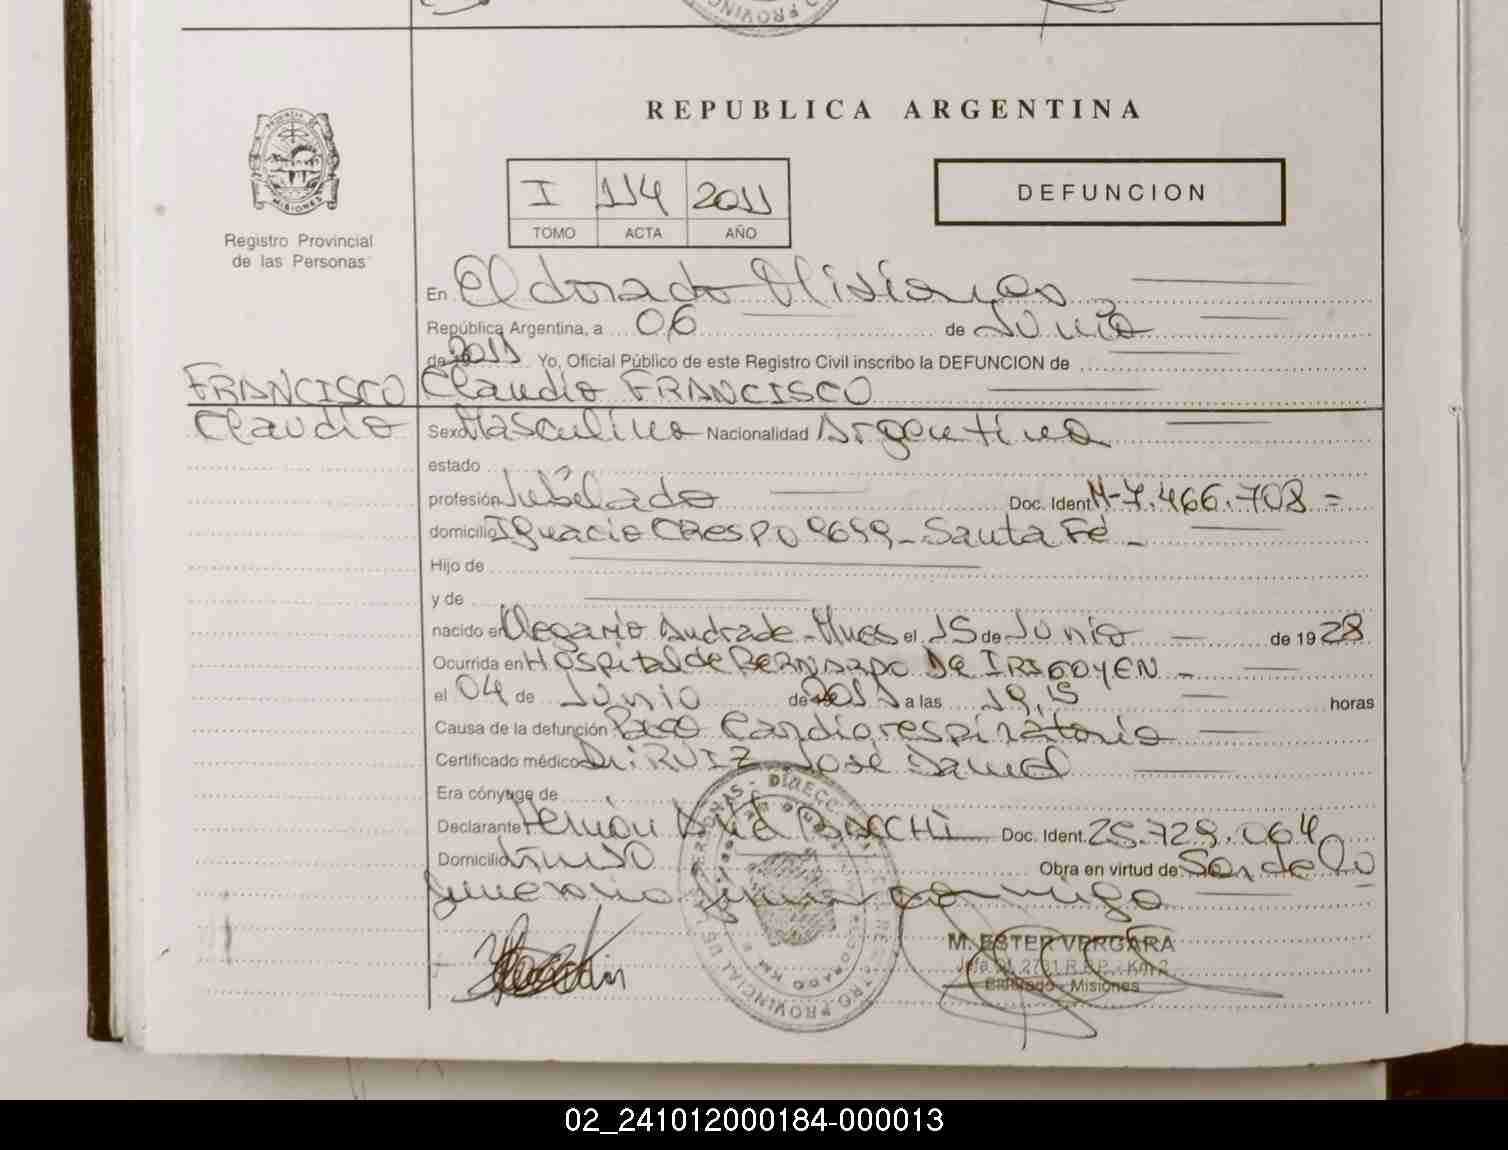 REPUBLICA ARGENTINA
PROVINCIA DE
MISIONES
I 114 2011
TOMO ACTA AÑO
DEFUNCION
Registro Provincial
de las Personas
En Eldorado Misiones
República Argentina, a 06 de Junio
de 2011 Yo, Oficial Público de este Registro Civil inscribo la DEFUNCION de
FRANCISCO
Claudio
Claudio FRANCISCO
Sexo Masculino Nacionalidad Argentina
estado
profesión Jubilado Doc. Ident. M-7.466.708=
domicilio Ignacio CResPo 9659-Santa Fe-
Hijo de
y de
nacido en Olegario Andrade-Mnes el 15 de Junio de 1928
Ocurrida en Hospital de BERNARDO De IRIGOYEN-
el 04 de Junio de 2011 a las 19,15 horas
Causa de la defunción Paro Cardiorespiratorio
Certificado médico Dr: RUIZ José Daniel
Era cónyuge de
Declarante Hernán BACCHI Doc. Ident. 25.729.064
Domicilio Obra en virtud de Ser de la
funeraria firma conmigo
M. ESTER VERGARA
Eldorado - Misiones
02_241012000184-000013